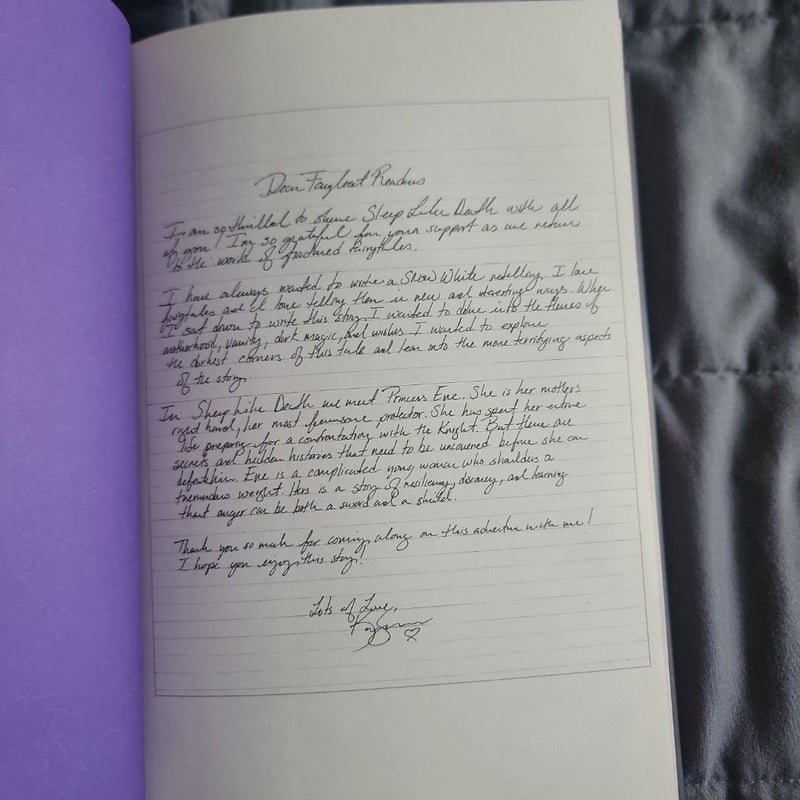 Dear Fairyloot Readers
I am so thrilled to share Sleep Like Death with all
of you! I'm so grateful for your support as we return
to the world of fractured fairytales.
I have always wanted to write a Snow White retelling. I love
fairytales and I love telling them in new and interesting ways. When
I sat down to write this story, I wanted to delve into the themes of
motherhood, vanity, dark magic, and wishes. I wanted to explore
the darkest corners of this tale and lean into the more terrifying aspects
of the story.
In Sleep Like Death we meet Princess Eve. She is her mothers
right hand, her most fearsome protector. She has spent her entire
life preparing for a confrontation with the Knight. But there are
secrets and hidden histories that need to be uncovered before she can
defeat him. Eve is a complicated young woman who shoulders a
tremendous weight. Hers is a story of resiliency, discovery, and learning
that anger can be both a sword and a shield.
Thank you so much for coming along on this adventure with me!
I hope you enjoy this story!
Lots of Love,